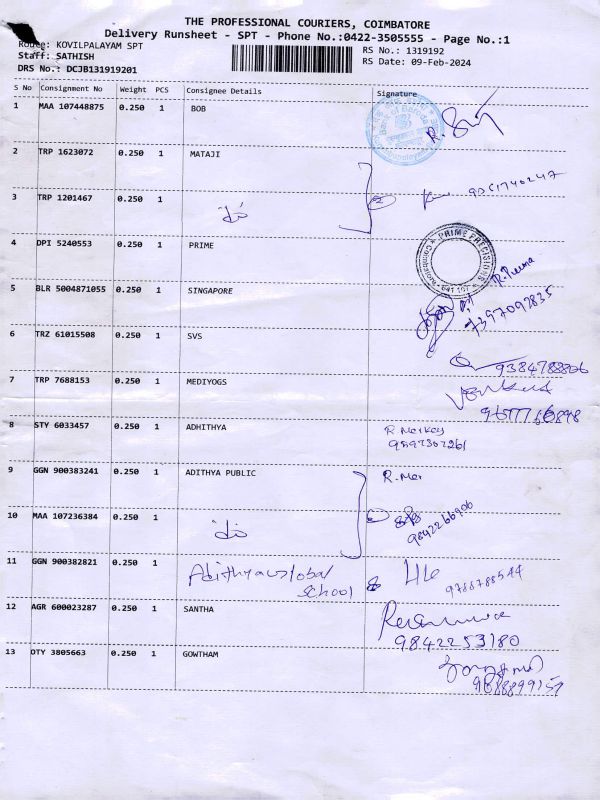 THE PROFESSIONAL COURIERS, COIMBATORE
Delivery Runsheet - SPT - Phone No.:0422-3505555 - Page No.:1
Route: KOVILPALAYAM SPT
RS No.: 1319192
Staff: SATHISH
RS Date: 09-Feb-2024
DRS No.: DCJB131919201
S No Consignment No Weight PCS Consignee Details Signature
1 MAA 107448875 0.250 1 BOB
2 TRP 1623072 0.250 1 MATAJI
3 TRP 1201467 0.250 1
4 DPI 5240553 0.250 1 PRIME
PRIME PRECISIONS
5 BLR 5004871055 0.250 1 SINGAPORE
7397092835
6 TRZ 61015508 0.250 1 SVS
9384788806
7 TRP 7688153 0.250 1 MEDIYOGS
8 STY 6033457 0.250 1 ADHITHYA
9 GGN 900383241 0.250 1 ADITHYA PUBLIC
10 MAA 107236384 0.250 1
9842266906
11 GGN 900382821 0.250 1 Adithya Global School
9788788544
12 AGR 600023287 0.250 1 SANTHA
9842253180
13 OTY 3805663 0.250 1 GOWTHAM